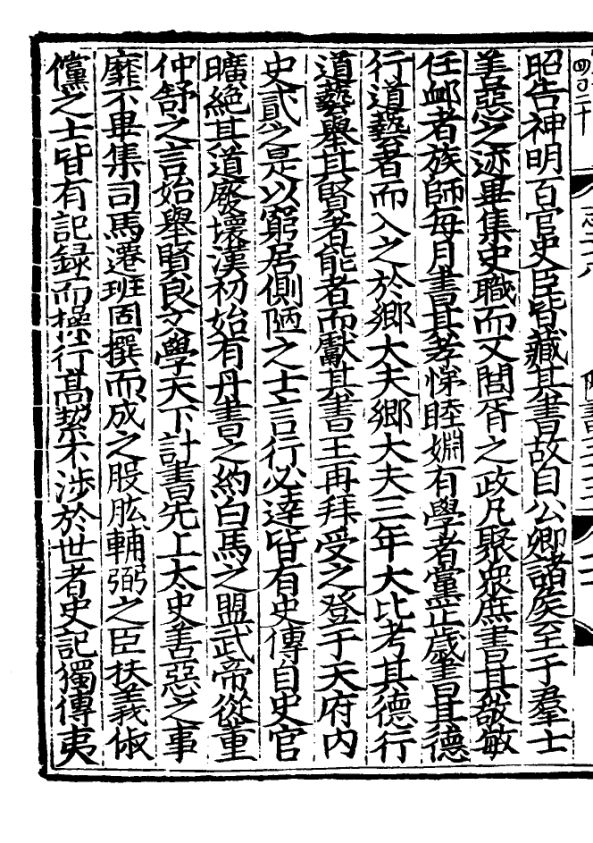 昭告神明百官史臣皆藏其書故自公卿諸侯至于羣士
善惡之迹畢集史職而又閭胥之政凡聚衆庶書其敬敏
任卹者族師每月書其孝悌睦婣有學者黨正歲書其德
行道藝者而入之於鄉大夫鄉大夫三年大比考其德行
道藝舉其賢者能者而獻其書王再拜受之登于天府內
史貳之是以窮居側陋之士言行必達皆有史傳自史官
曠絕其道廢壞漢初始有丹書之約白馬之盟武帝從董
仲舒之言始舉賢良文學天下計書先上太史善惡之事
靡不畢集司馬遷班固撰而成之股肱輔弼之臣扶義俶
儻之士皆有記録而操行髙絜不涉於世者史記獨傳夷